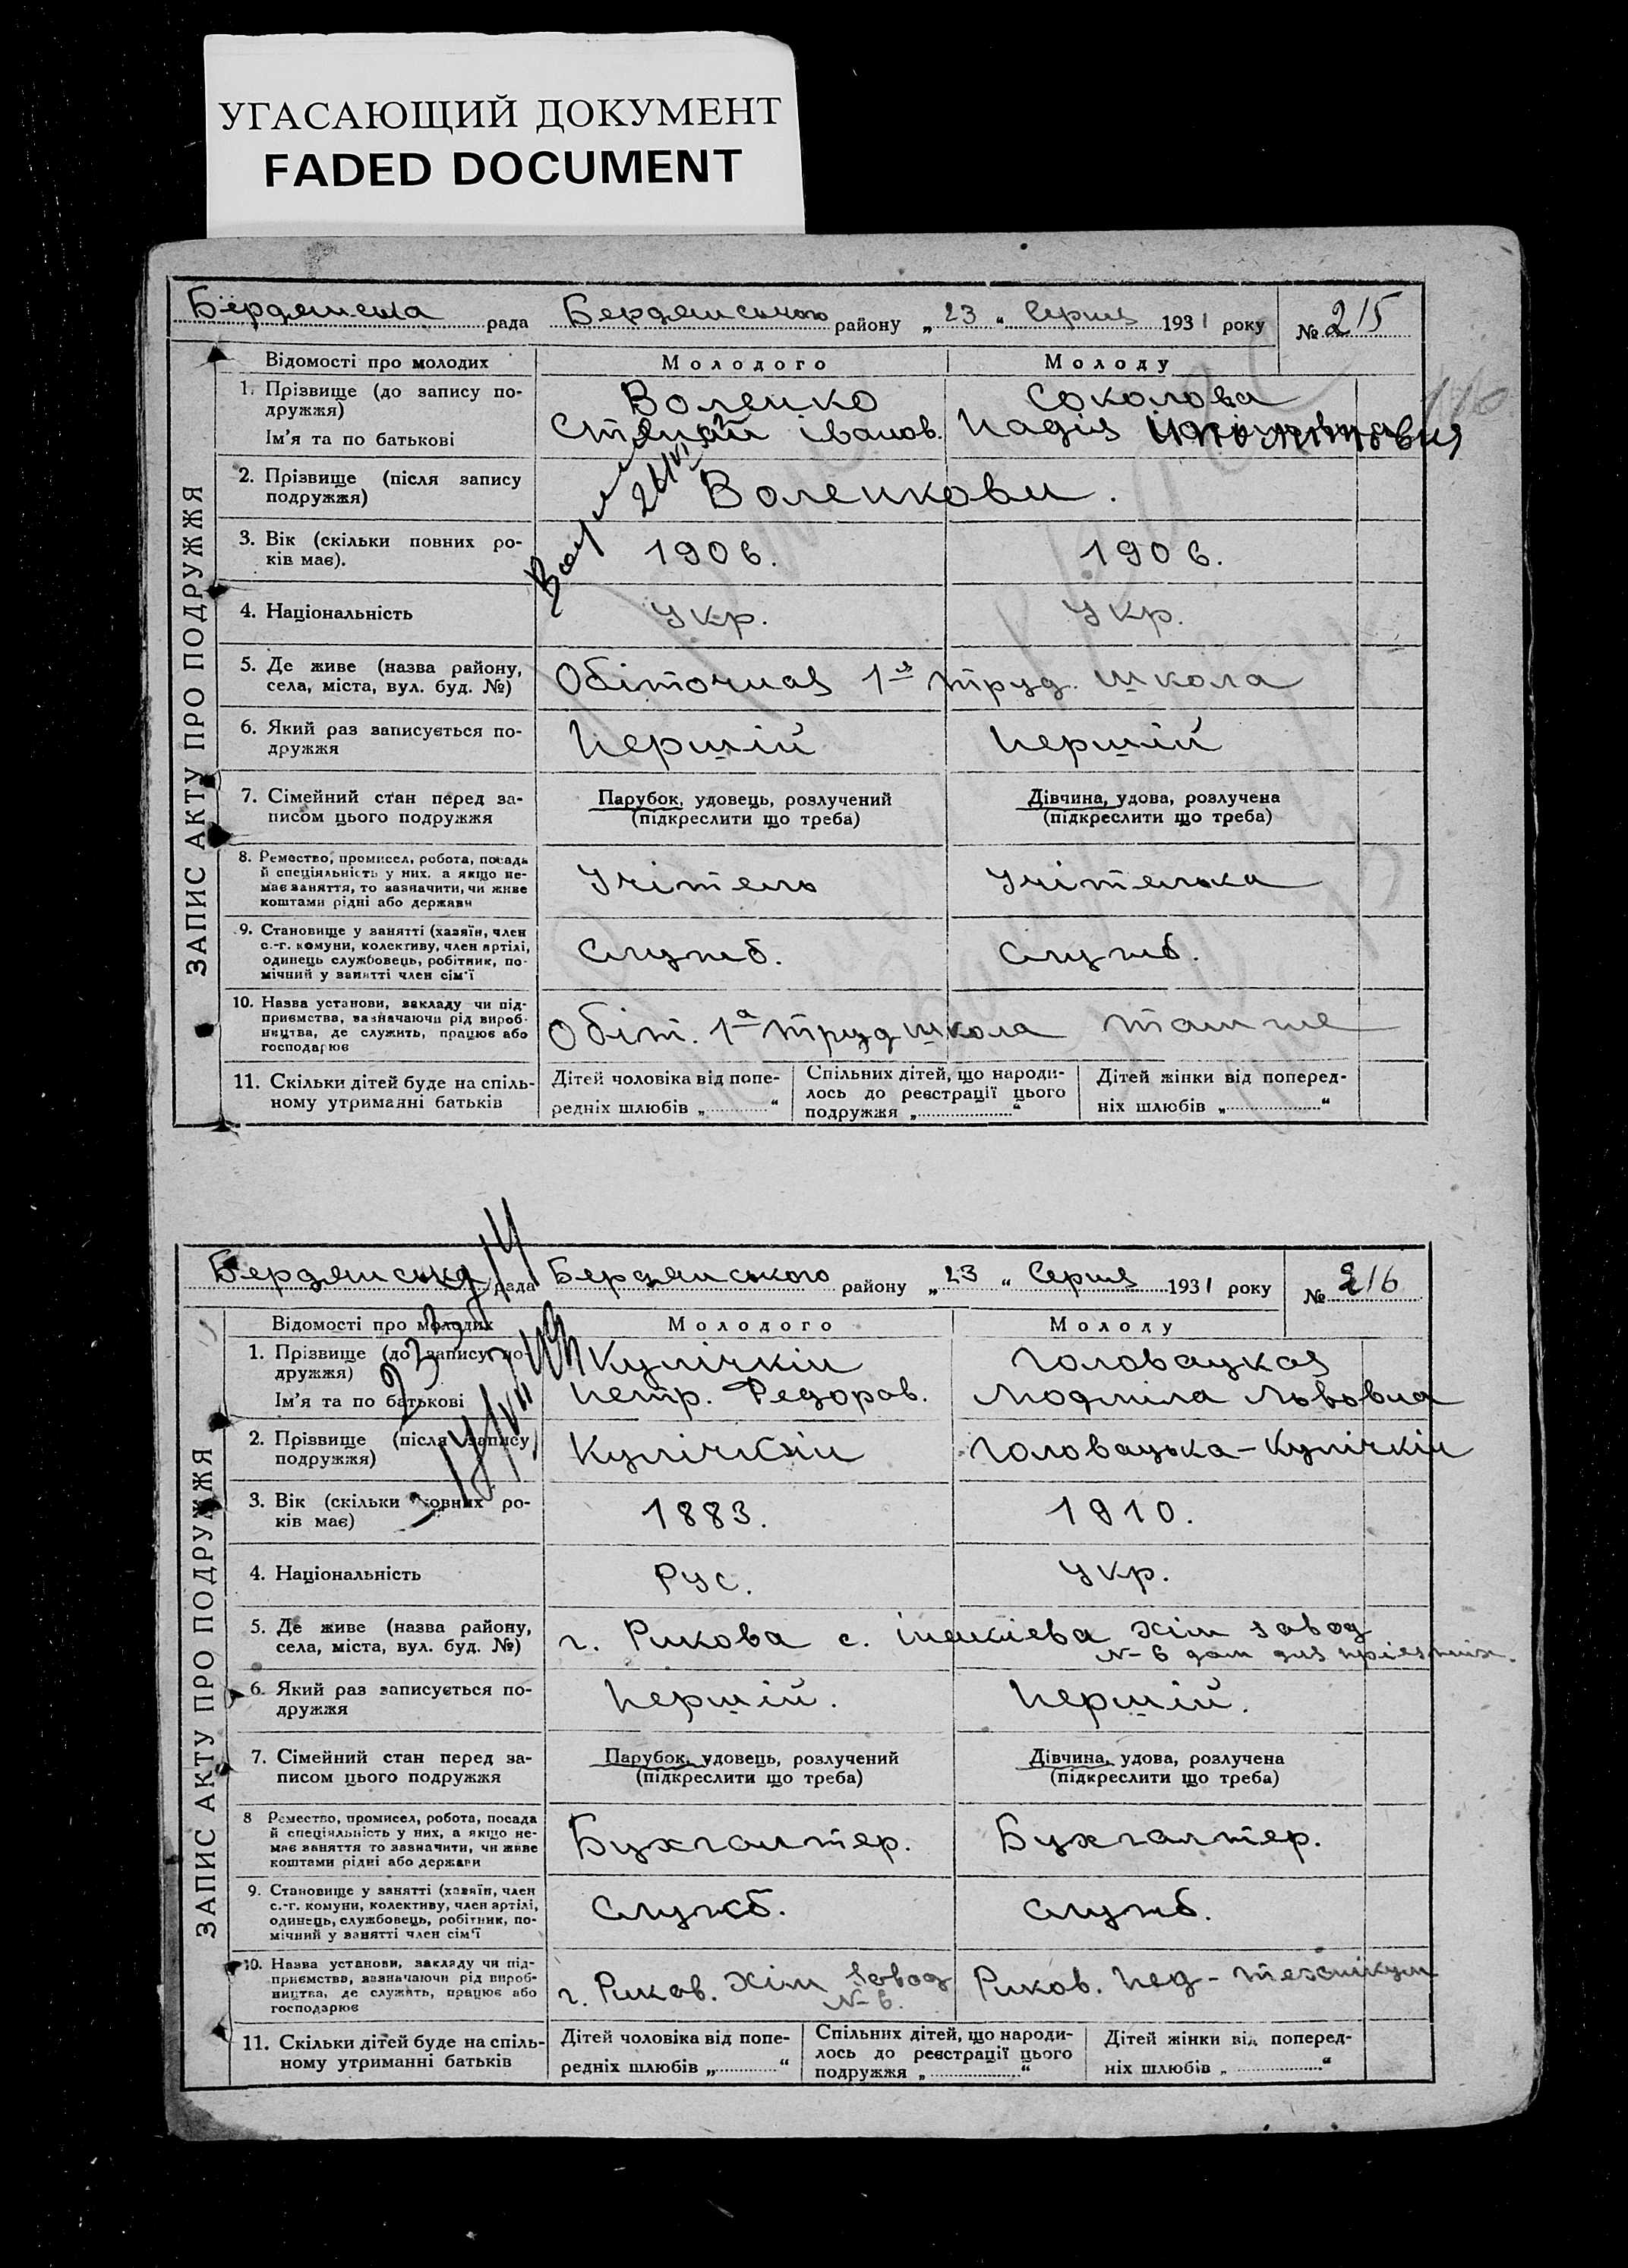 УГАСАЮЩИЙ ДОКУМЕНТ
FADED DOCUMENT
Бердянська рада Бердянського району „23“ Серпня 1931 року № 215
ЗАПИС АКТУ ПРО ПОДРУЖЖЯ
Відомості про молодих Молодого Молоду
1. Прізвище (до запису по- Воленко Соколова
дружжя)
Ім'я та по батькові Степан іванов. Надія
2. Прізвище (після запису Воленкови.
подружжя)
3. Вік (скільки повних ро- 1906. 1906.
ків має).
4. Національність Укр. Укр.
5. Де живе (назва району, Обіточная 1я труд. школа
села, міста, вул. буд. №)
6. Який раз записується по- Першій Першій
дружжя
7. Сімейний стан перед за- Парубок, удовець, розлучений Дівчина, удова, розлучена
писом цього подружжя (підкреслити що треба) (підкреслити що треба)
8. Ремество, промисел, робота, посада
й спеціяльність у них, а якщо не- Учітель Учітелька
має заняття, то зазначити, чи живе
коштами рідні або держави
9. Становище у занятті (хазяїн, член
с.-г. комуни, колективу, член артілі, Служб. Служб.
одинець службовець, робітник, по-
мічний у занятті член сім'ї
10. Назва установи, закладу чи під-
приємства, зазначаючи рід вироб- Обіт. 1а труд школа там же
ництва, де служить, працює або
господарює
11. Скільки дітей буде на спіль- Дітей чоловіка від попе- Спільних дітей, що народи- Дітей жінки від поперед-
ному утриманні батьків редніх шлюбів „ “ лось до реєстрації цього ніх шлюбів „ “
подружжя „ “
Бердянська рада Бердянського району „23“ Серпня 1931 року № 216
ЗАПИС АКТУ ПРО ПОДРУЖЖЯ
Відомості про молодих Молодого Молоду
1. Прізвище (до запису по- Купічкін Головацкая
дружжя)
Ім'я та по батькові Петр. Федоров. Людміла Львовна
2. Прізвище (після запису Купічкін Головацька-Купічкін
подружжя)
3. Вік (скільки повних ро- 1883. 1910.
ків має)
4. Національність Рус. Укр.
5. Де живе (назва району, г. Рикова с. Хім завод
села, міста, вул. буд. №) №6 дом для
6. Який раз записується по- Першій. Першій.
дружжя
7. Сімейний стан перед за- Парубок, удовець, розлучений Дівчина, удова, розлучена
писом цього подружжя (підкреслити що треба) (підкреслити що треба)
8 Ремество, промисел, робота, посада
й спеціяльність у них, а якщо не- Бухгалтер. Бухгалтер.
має заняття то зазначити, чи живе
коштами рідні або держави
9. Становище у занятті (хазяїн, член
с.-г. комуни, колективу, член артілі, Служб. Служб.
одинець, службовець, робітник, по-
мічний у занятті член сім'ї
10. Назва установи, закладу чи під-
приємства, зазначаючи рід вироб- г. Риков. Хім завод Риков. Пед-техникум
ництва, де служить, працює або №6.
господарює
11. Скільки дітей буде на спіль- Дітей чоловіка від попе- Спільних дітей, що народи- Дітей жінки від поперед-
ному утриманні батьків редніх шлюбів „ “ лось до реєстрації цього ніх шлюбів „ “
подружжя „ “